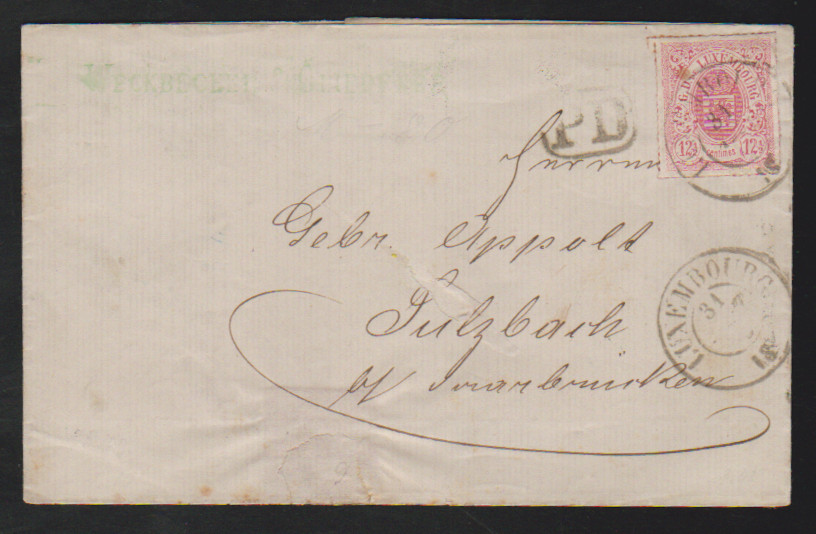 G. DUCHÉ DE LUXEMBOURG
12½ CENTIMES 12½
31
PD
Herren
Gebr. Appolt
Sulzbach
b/ Saarbrücken
LUXEMBOURG
31